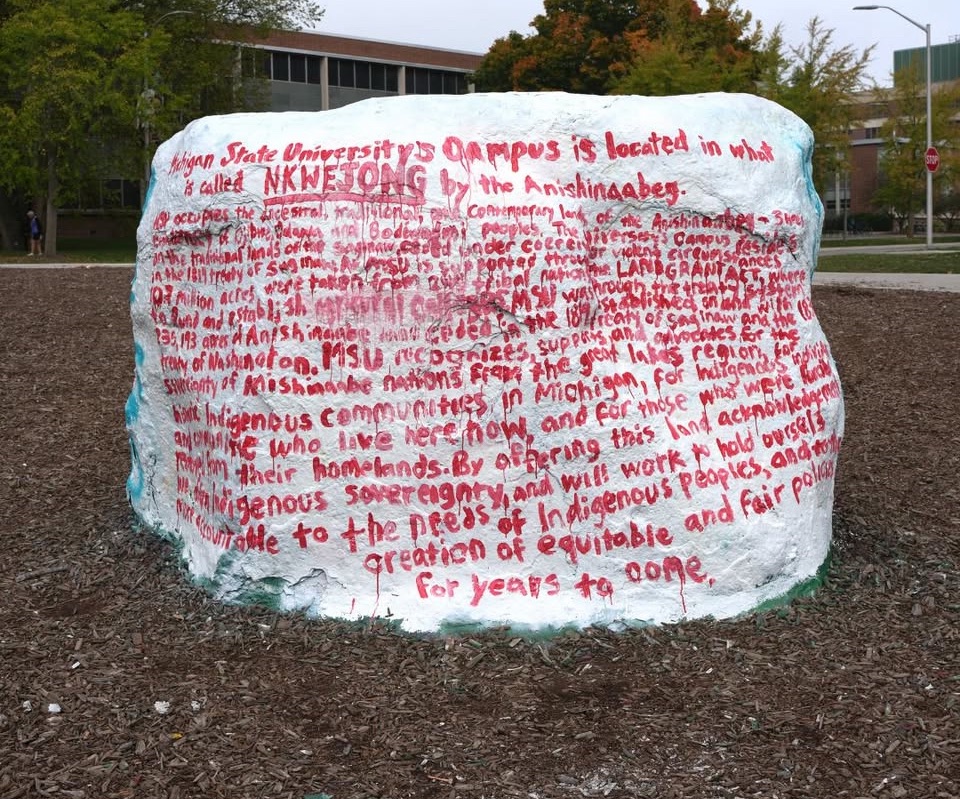 Michigan State University's Campus is located in what
is called NKWEJONG by the Anishinaabeg.
MSU occupies the ancestral, traditional, and Contemporary land of the Anishinaabeg - Three
of Ojibwe, Odawa and Bodewadmi peoples. The University's Campus resides
on the traditional lands of the Saginaw under coercive violent circumstances
in the 1819 treaty of Saginaw. MSU is supported through the LANDGRANT ACT, where
10.7 million acres were taken from 250 tribal nations
to fund and establish MSU was established on land
235,193 acres of Anishinaabe land ceded in the 1819 treaty of Saginaw and the 183
treaty of Washington. MSU recognizes, supports, and advocates for the
sovereignty of Mishinaabe nations from the great lakes region, for
Indigenous communities in Michigan, for Indigenous individuals
and communitie who live here now, and for those who were
removed from their homelands. By offering this land acknowledgement
we Indigenous sovereignty, and will work to hold ourselves
more accountable to the needs of Indigenous peoples, and to
creation of equitable and fair policies
for years to come.